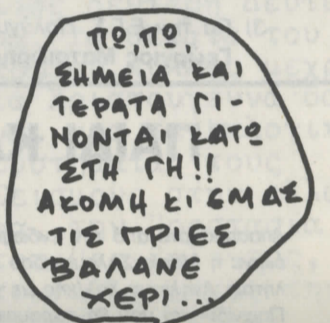 ΠΩ, ΠΩ,
ΣΗΜΕΙΑ ΚΑΙ
ΤΕΡΑΤΑ ΓΙ-
ΝΟΝΤΑΙ ΚΑΤΩ
ΣΤΗ ΓΗ!!
ΑΚΟΜΗ ΚΙ ΕΜΑΣ
ΤΙΣ ΓΡΙΕΣ
ΒΑΛΑΝΕ
ΧΕΡΙ...